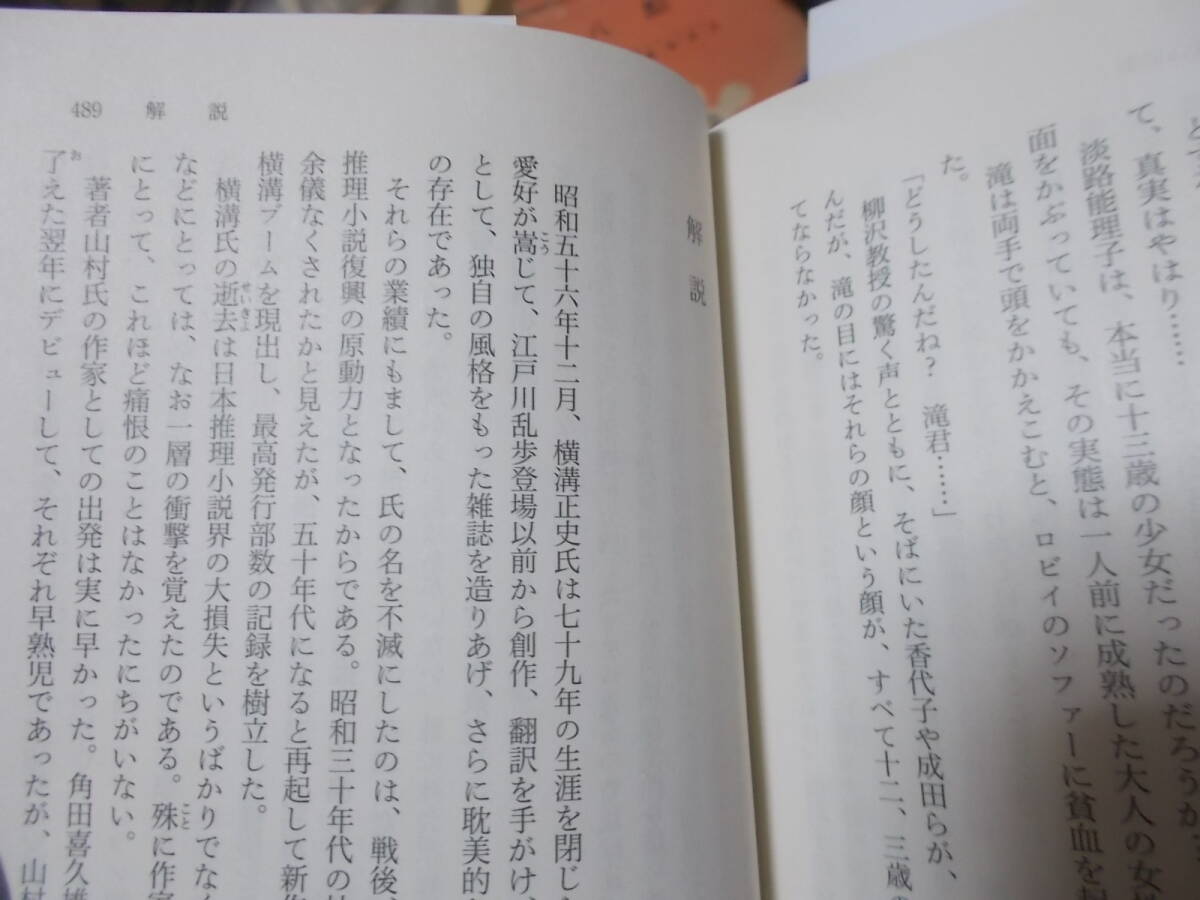 て、真実はやはり……
淡路能理子は、本当に十三歳の少女だったのだろうか
面をかぶっていても、その実態は一人前に成熟した大人の女性
滝は両手で頭をかかえこむと、ロビイのソファーに貧血を
た。
「どうしたんだね？　滝君……」
柳沢教授の驚く声とともに、そばにいた香代子や成田らが、
んだが、滝の目にはそれらの顔という顔が、すべて十二、三歳の
てならなかった。
489　解　説
解　説
昭和五十六年十二月、横溝正史氏は七十九年の生涯を閉じ
愛好が嵩こうじて、江戸川乱歩登場以前から創作、翻訳を手がけ、
として、独自の風格をもった雑誌を造りあげ、さらに耽美的
の存在であった。
それらの業績にもまして、氏の名を不滅にしたのは、戦後、
推理小説復興の原動力となったからである。昭和三十年代の
余儀なくされたかと見えたが、五十年代になると再起して新作
横溝ブームを現出し、最高発行部数の記録を樹立した。
横溝氏の逝去せいきよは日本推理小説界の大損失というばかりでなく
などにとっては、なお一層の衝撃を覚えたのである。殊ことに作家
にとって、これほど痛恨のことはなかったにちがいない。
著者山村氏の作家としての出発は実に早かった。角田喜久雄
了おえた翌年にデビューして、それぞれ早熟児であったが、山村